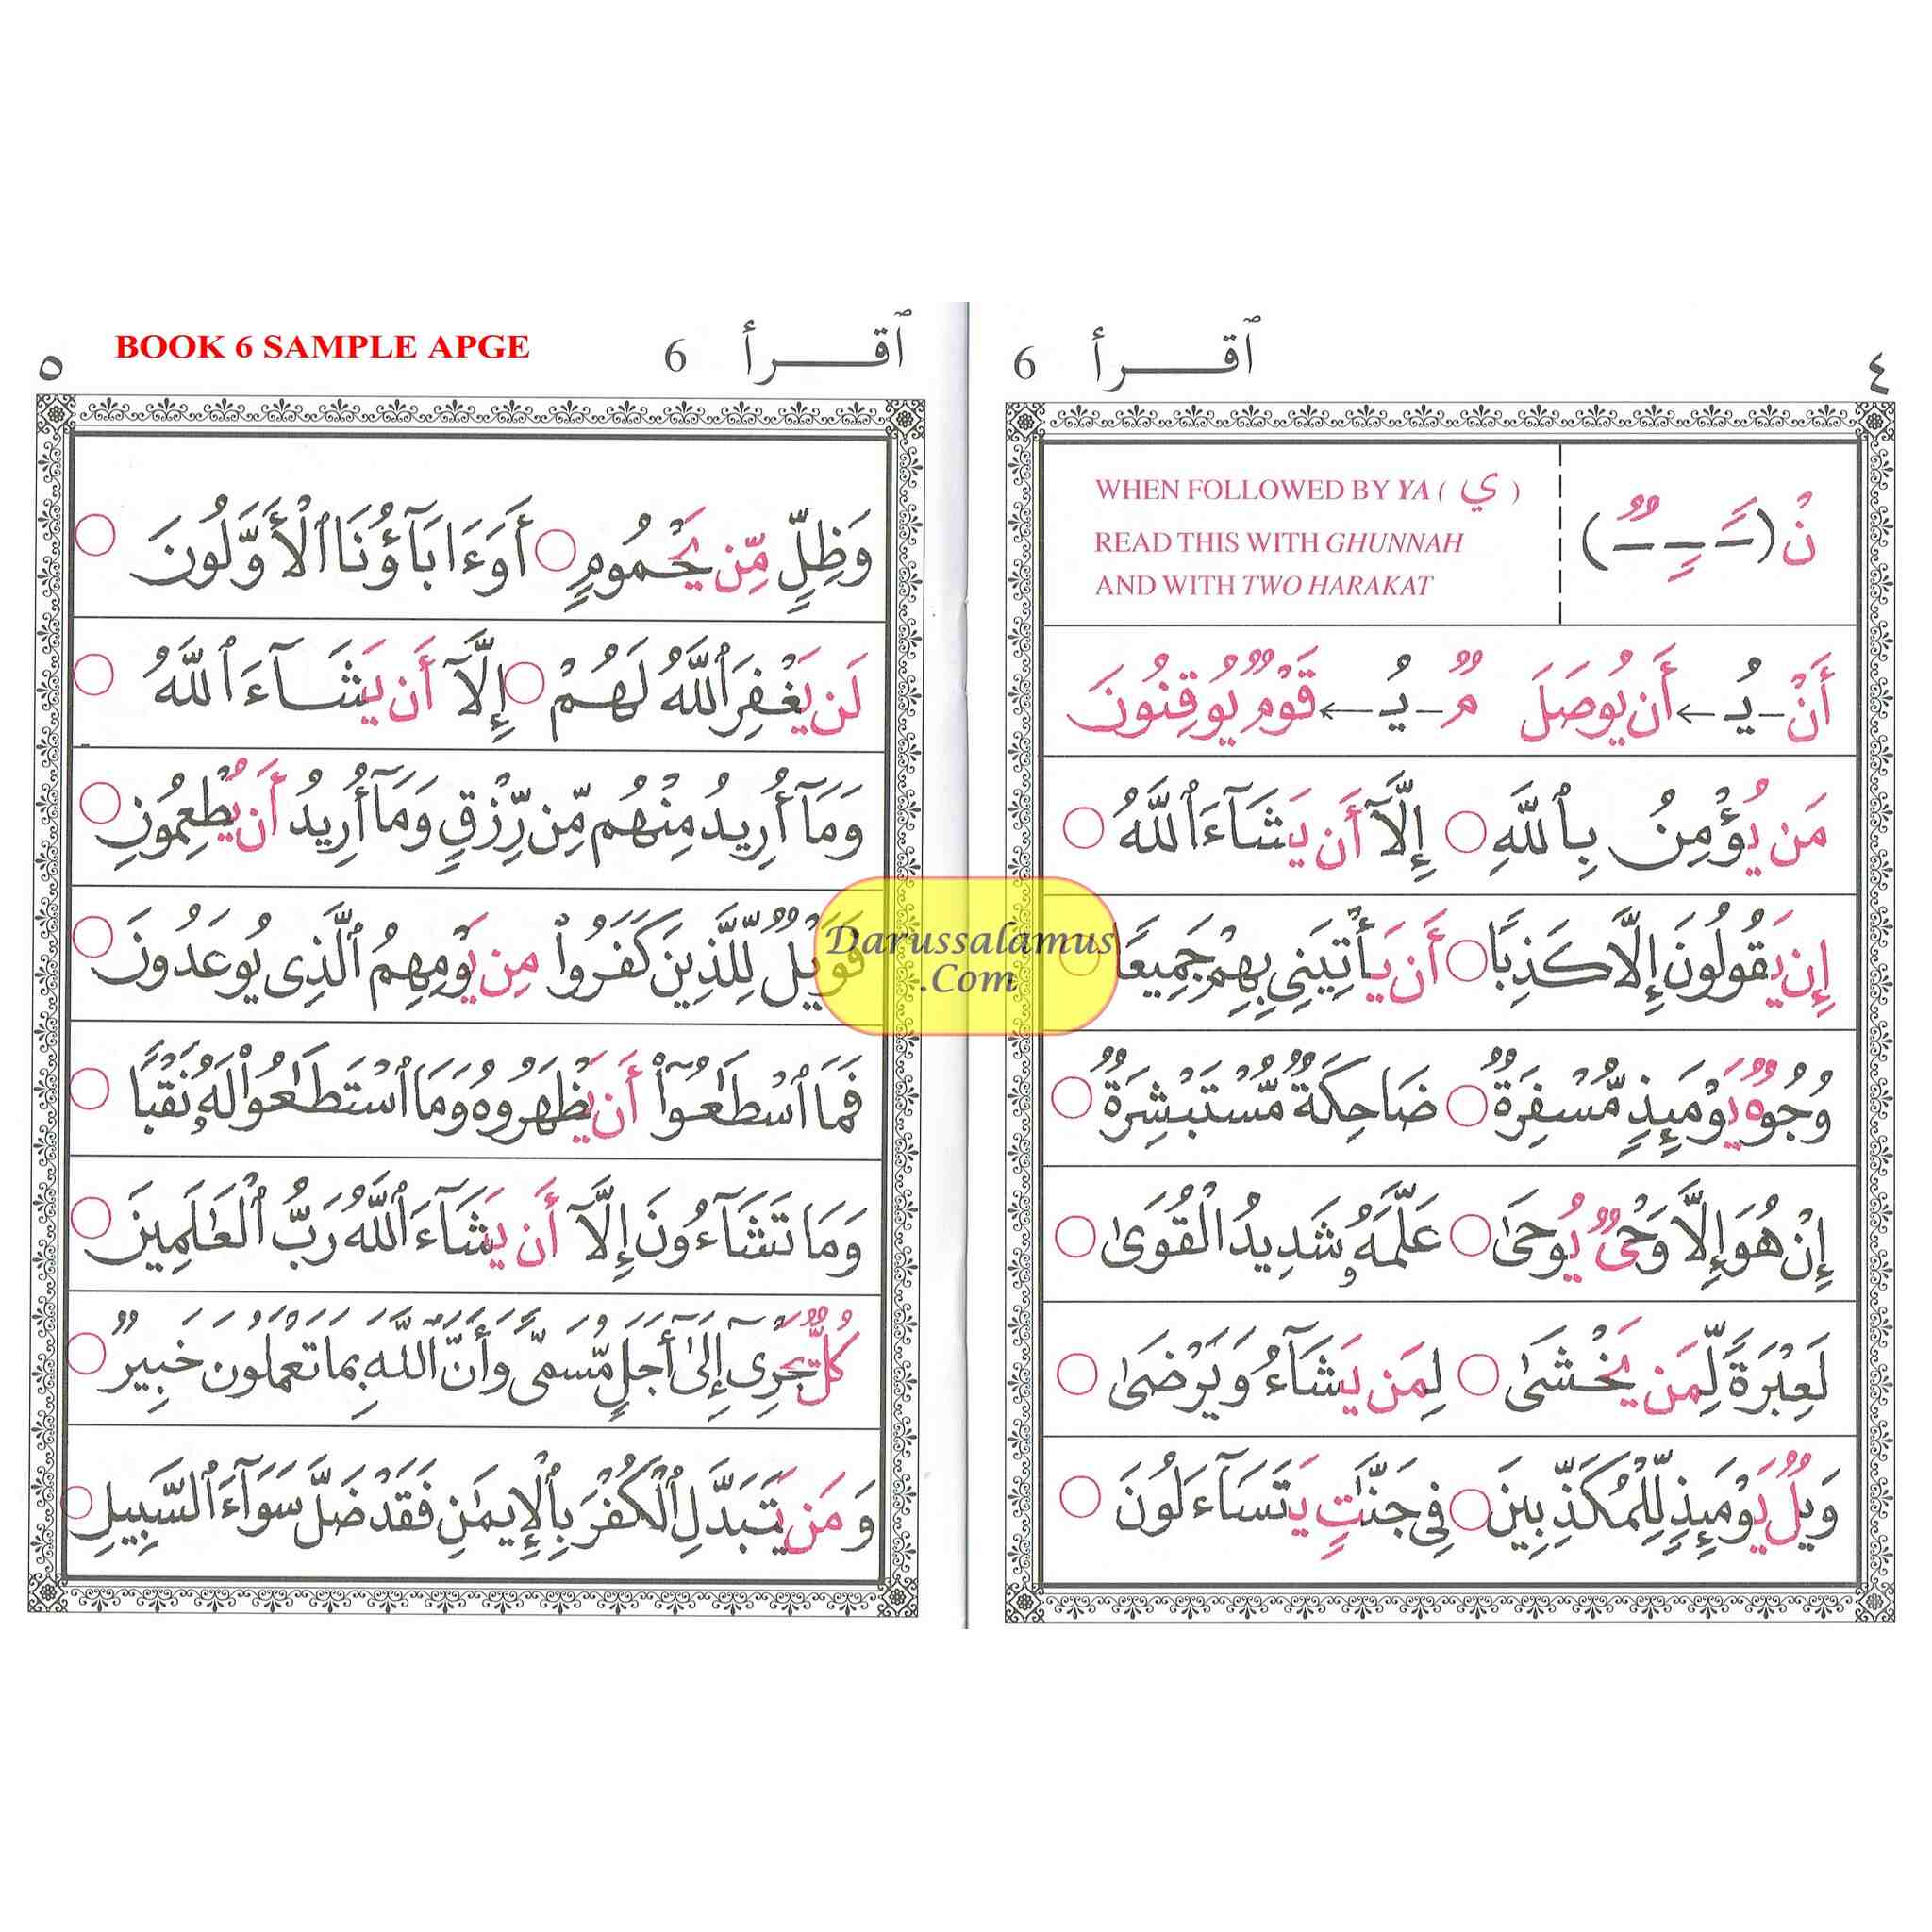 ٱقـــرأ 6
٤
WHEN FOLLOWED BY YA ( ي )
READ THIS WITH GHUNNAH
AND WITH TWO HARAKAT
نْ (ـًـ ـٍـ ـٌـ)
أَنْ – يُـ ← أَن يُوصَلَ مٌ – يُـ ← قَوْمٌ يُوقِنُونَ
مَن يُؤْمِنُ بِٱللَّهِ ○ إِلَّآ أَن يَشَآءَ ٱللَّهُ ○
إِن يَقُولُونَ إِلَّا كَذِبًا ○ أَن يَأْتِيَنِي بِهِمْ جَمِيعًا ○
وُجُوهٌ يَوْمَئِذٍ مُّسْفِرَةٌ ○ ضَاحِكَةٌ مُّسْتَبْشِرَةٌ ○
إِنْ هُوَ إِلَّا وَحْىٌ يُوحَىٰ ○ عَلَّمَهُۥ شَدِيدُ الْقُوَىٰ ○
لَعِبْرَةً لِّمَن يَخْشَىٰ ○ لِمَن يَشَآءُ وَيَرْضَىٰ ○
وَيْلٌ يَوْمَئِذٍ لِّلْمُكَذِّبِينَ ○ فِى جَنَّٰتٍ يَتَسَآءَلُونَ ○
BOOK 6 SAMPLE APGE
ٱقـــرأ 6
٥
وَظِلٍّ مِّن يَحْمُومٍ ○ أَوَءَابَآؤُنَا ٱلْأَوَّلُونَ ○
لَن يَغْفِرَ ٱللَّهُ لَهُمْ ○ إِلَّآ أَن يَشَآءَ ٱللَّهُ ○
وَمَآ أُرِيدُ مِنْهُم مِّن رِّزْقٍ وَمَآ أُرِيدُ أَن يُطْعِمُونِ ○
فَوَيْلٌ لِّلَّذِينَ كَفَرُوا۟ مِن يَوْمِهِمُ ٱلَّذِى يُوعَدُونَ ○
فَمَا ٱسْطَٰعُوٓا۟ أَن يَظْهَرُوهُ وَمَا ٱسْتَطَٰعُوا۟ لَهُۥ نَقْبًا ○
وَمَا تَشَآءُونَ إِلَّآ أَن يَشَآءَ ٱللَّهُ رَبُّ ٱلْعَٰلَمِينَ ○
كُلٌّ يَجْرِىٓ إِلَىٰٓ أَجَلٍ مُّسَمًّى وَأَنَّ ٱللَّهَ بِمَا تَعْمَلُونَ خَبِيرٌ ○
وَمَن يَتَبَدَّلِ ٱلْكُفْرَ بِٱلْإِيمَٰنِ فَقَدْ ضَلَّ سَوَآءَ ٱلسَّبِيلِ ○
Darussalamus
.Com